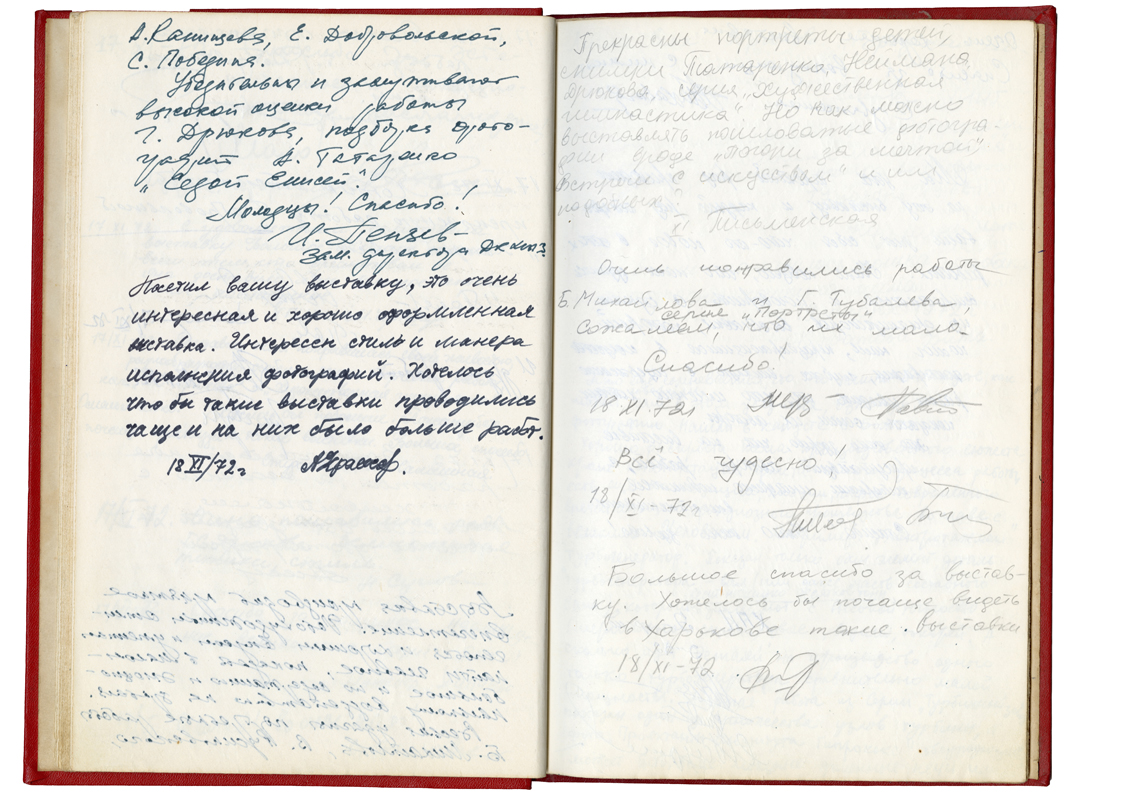 А. Ранищева, Е. Добровольской,
С. Победина.
Убедительна и заслуживает
высокой оценки работы
Г. Дрюкова, подборка фото-
графий А. Татаренко
"Седой Енисей".
Молодцы! Спасибо!
И. Пензев
зам. директора
Пастил вашу выставку, это очень
интересная и хорошо оформленная
выставка. Интересен стиль и манера
исполнения фотографий. Хотелось
что бы такие выставки проводились
чаще и на них было больше работ.
18 XI/72г
Прекрасны портреты детей,
снимки Татаренко, Неймана
Дрюкова, серия "Художественная
гимнастика". Но как можно
выставлять пошловатые фотогра-
фии вроде "Погони за мечтой"
"Встречи с искусством" и им
подобных
Письменская
Очень понравились работы
Б. Михайлова и Г. Тубалева
серия "Портреты"
Сожалеем, что их мало!
Спасибо!
18 XI 72г
Всё чудесно!
18/XI-72г
Большое спасибо за выстав-
ку. Хотелось бы почаще видеть
в Харькове такие выставки
18/XI-72